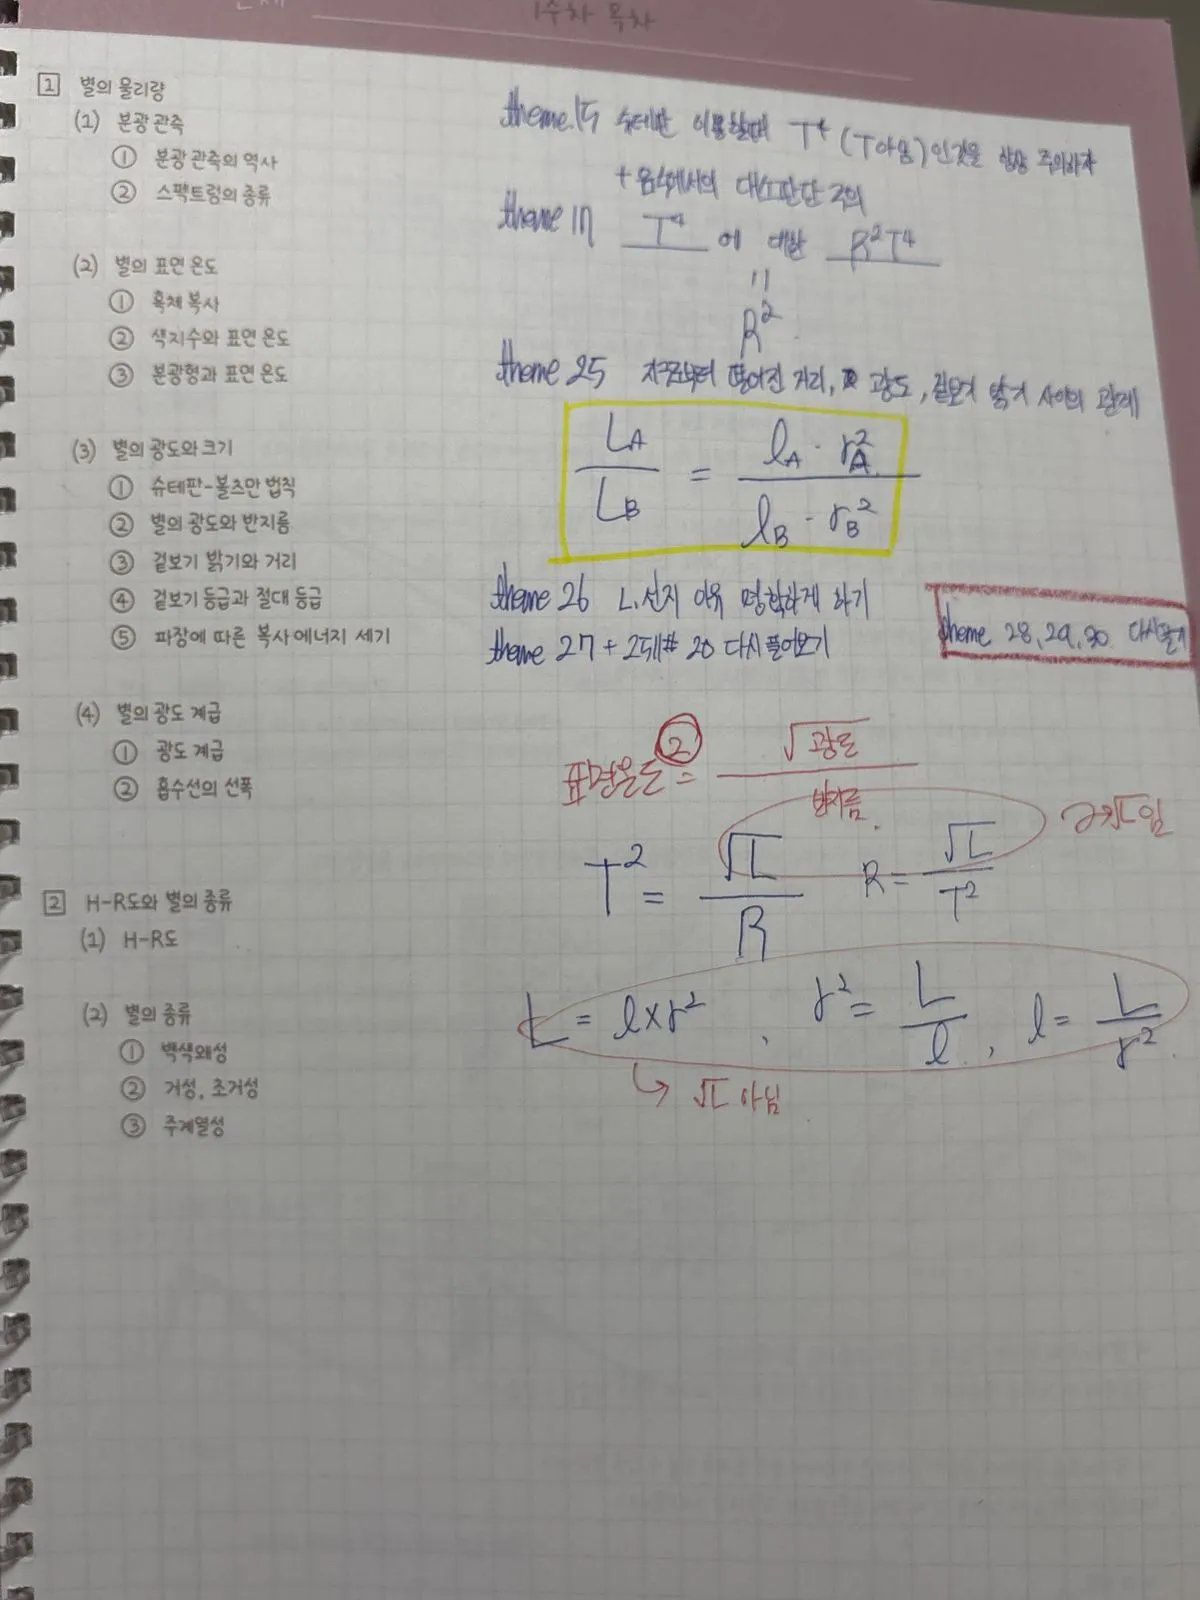 1주차 목차
1 별의 물리량
(1) 분광 관측
① 분광 관측의 역사
② 스펙트럼의 종류
(2) 별의 표면 온도
① 흑체 복사
② 색지수와 표면 온도
③ 분광형과 표면 온도
(3) 별의 광도와 크기
① 슈테판-볼츠만 법칙
② 별의 광도와 반지름
③ 겉보기 밝기와 거리
④ 겉보기 등급과 절대 등급
⑤ 파장에 따른 복사 에너지 세기
(4) 별의 광도 계급
① 광도 계급
② 흡수선의 선폭
2 H-R도와 별의 종류
(1) H-R도
(2) 별의 종류
① 백색왜성
② 거성, 초거성
③ 주계열성
theme.15 슈테판 이용할때 T⁴ (T아님)인것을 항상 주의하자
+ 음수에서의 대소판단 주의
theme 17 T⁴ 에 대한 R²T⁴
=
R²
theme 25 지구로부터 떨어진 거리, 광도, 겉보기 밝기 사이의 관계
L_A / L_B = l_A · r_A² / l_B · r_B²
theme 26 L.선지 이유 명확하게 하기
theme 27 + 2도# 20 다시 풀어보기
theme 28, 29, 30 다시풀기
표면온도② = √광도 / 반지름
T² = √L / R R = √L / T²
L = l×r² , r² = L / l , l = L / r²
↳ √L 아님